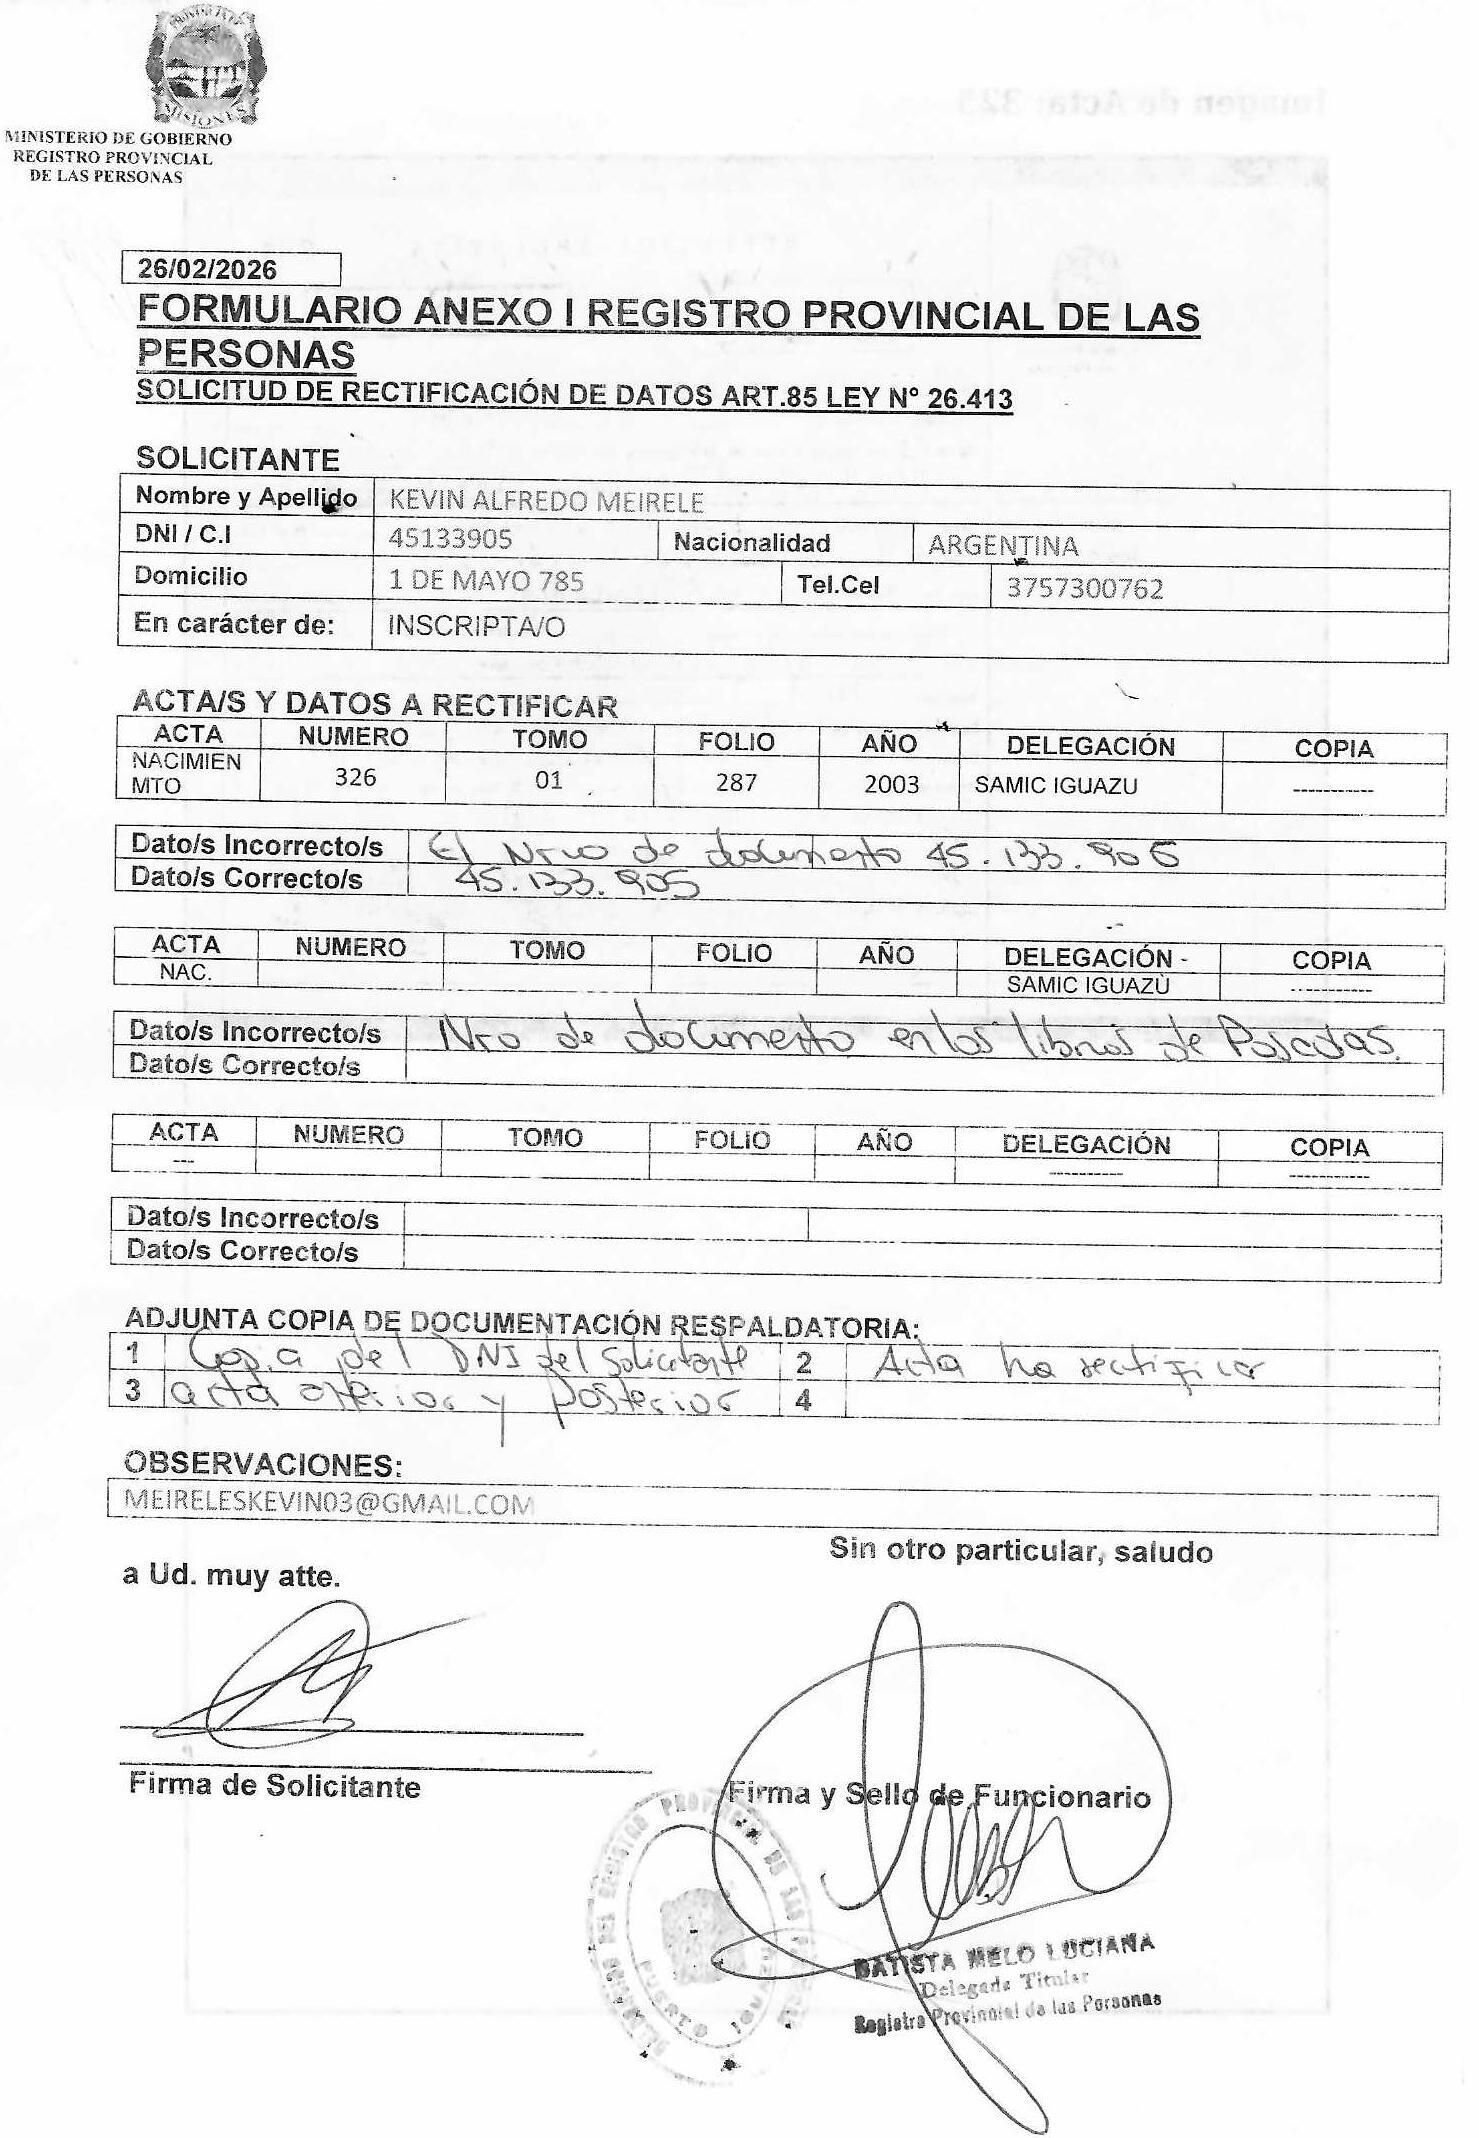 PROVINCIA DE
MISIONES
MINISTERIO DE GOBIERNO
REGISTRO PROVINCIAL
DE LAS PERSONAS
Imagen de Acta: 325
26/02/2026
FORMULARIO ANEXO I REGISTRO PROVINCIAL DE LAS
PERSONAS
SOLICITUD DE RECTIFICACIÓN DE DATOS ART.85 LEY Nº 26.413
SOLICITANTE
Nombre y Apellido KEVIN ALFREDO MEIRELE
DNI / C.I 45133905 Nacionalidad ARGENTINA
Domicilio 1 DE MAYO 785 Tel.Cel 3757300762
En carácter de: INSCRIPTA/O
ACTA/S Y DATOS A RECTIFICAR
ACTA NUMERO TOMO FOLIO AÑO DELEGACIÓN COPIA
NACIMIEN
MTO 326 01 287 2003 SAMIC IGUAZU -----------
Dato/s Incorrecto/s El Nro de documento 45.133.906
Dato/s Correcto/s 45.133.905
ACTA NUMERO TOMO FOLIO AÑO DELEGACIÓN - COPIA
NAC. SAMIC IGUAZÙ -----------
Dato/s Incorrecto/s Nro de documento en los libros de Posadas.
Dato/s Correcto/s
ACTA NUMERO TOMO FOLIO AÑO DELEGACIÓN COPIA
--- ---------- -----------
Dato/s Incorrecto/s
Dato/s Correcto/s
ADJUNTA COPIA DE DOCUMENTACIÓN RESPALDATORIA:
1 Copia del DNI del Solicitante 2 Acta ha rectificar
3 acta anterior y posterior 4
OBSERVACIONES:
MEIRELESKEVIN03@GMAIL.COM
Sin otro particular, saludo
a Ud. muy atte.
Firma de Solicitante
Firma y Sello de Funcionario
REGISTRO PROVINCIAL DE LAS
PUERTO IGUAZU
BATISTA MELO LUCIANA
Delegada Titular
Registro Provincial de las Personas